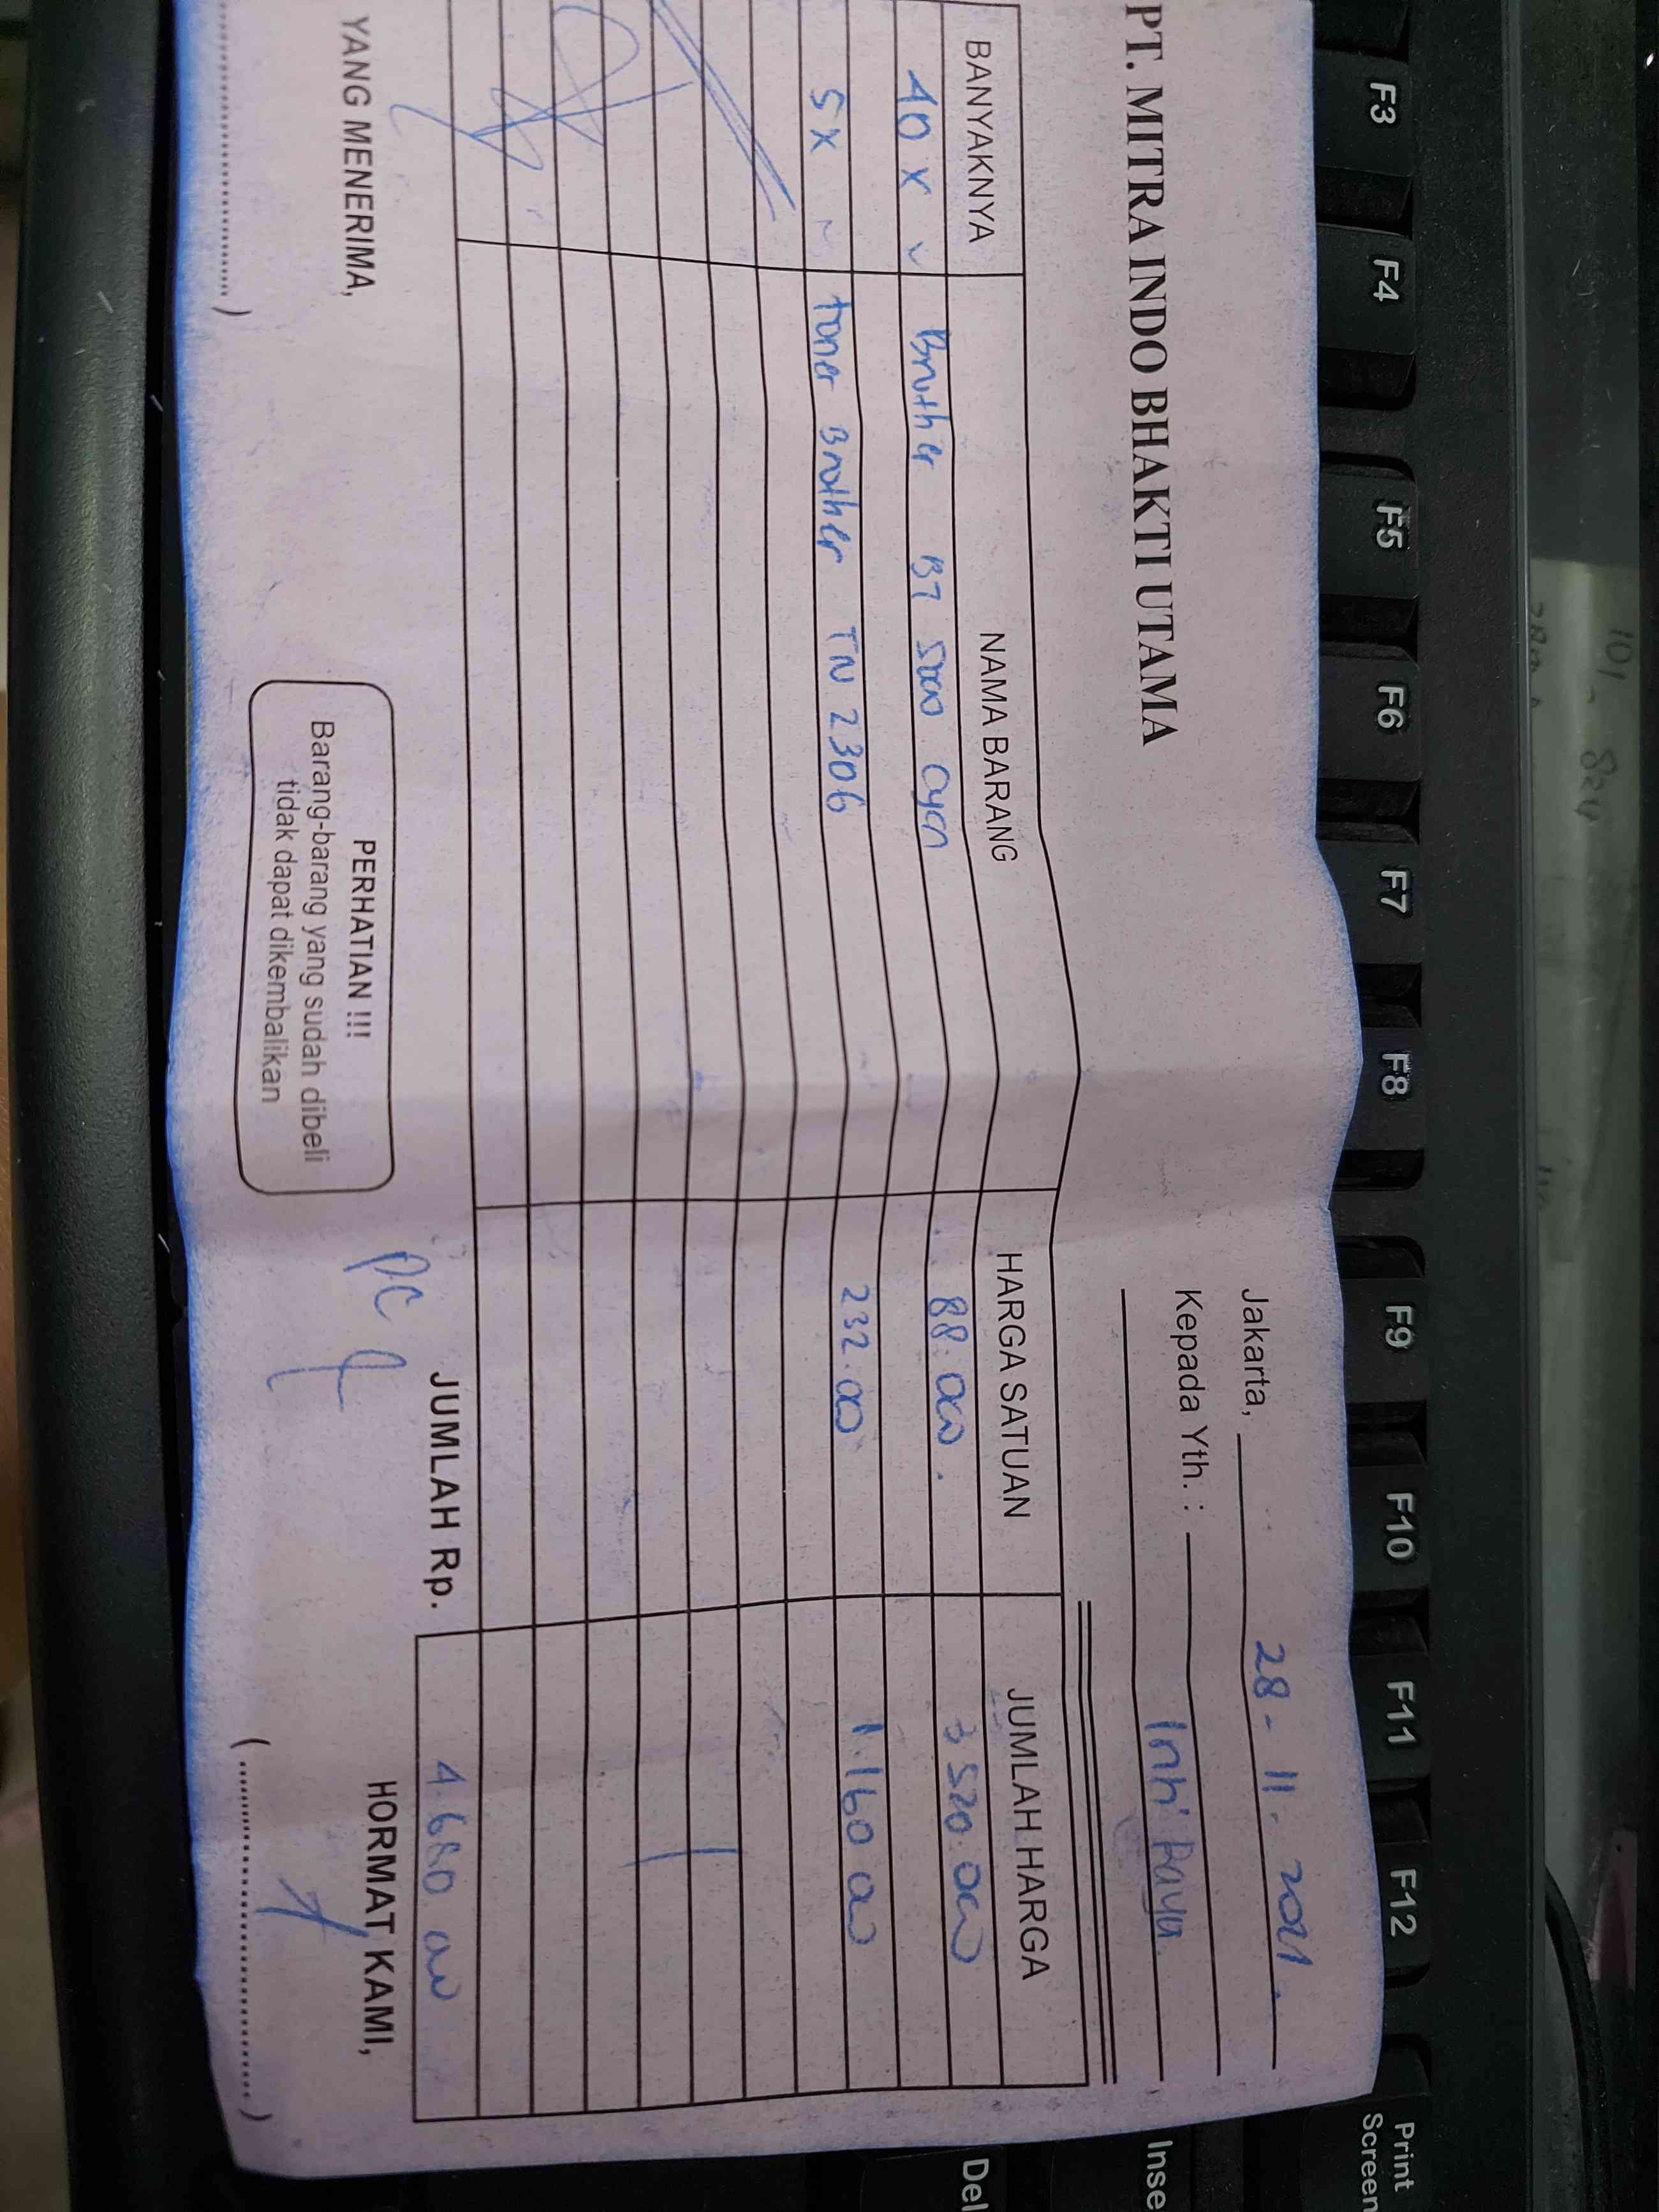 PT. MITRA INDO BHAKTI UTAMA
Jakarta, 28 - 11 - 2021.
Kepada Yth. :
BANYAKNYA NAMA BARANG HARGA SATUAN JUMLAH HARGA
40 x Brother BT 5000 Cyan 88.000. 3 520.000
5 x toner Brother TN 2306 232.000 1.160 000
JUMLAH Rp. 4.680 000
YANG MENERIMA,
PERHATIAN !!!
Barang-barang yang sudah dibeli
tidak dapat dikembalikan
PC
HORMAT KAMI,
F3 F4 F5 F6 F7 F8 F9 F10 F11 F12 Print
Screen
Inse
Del